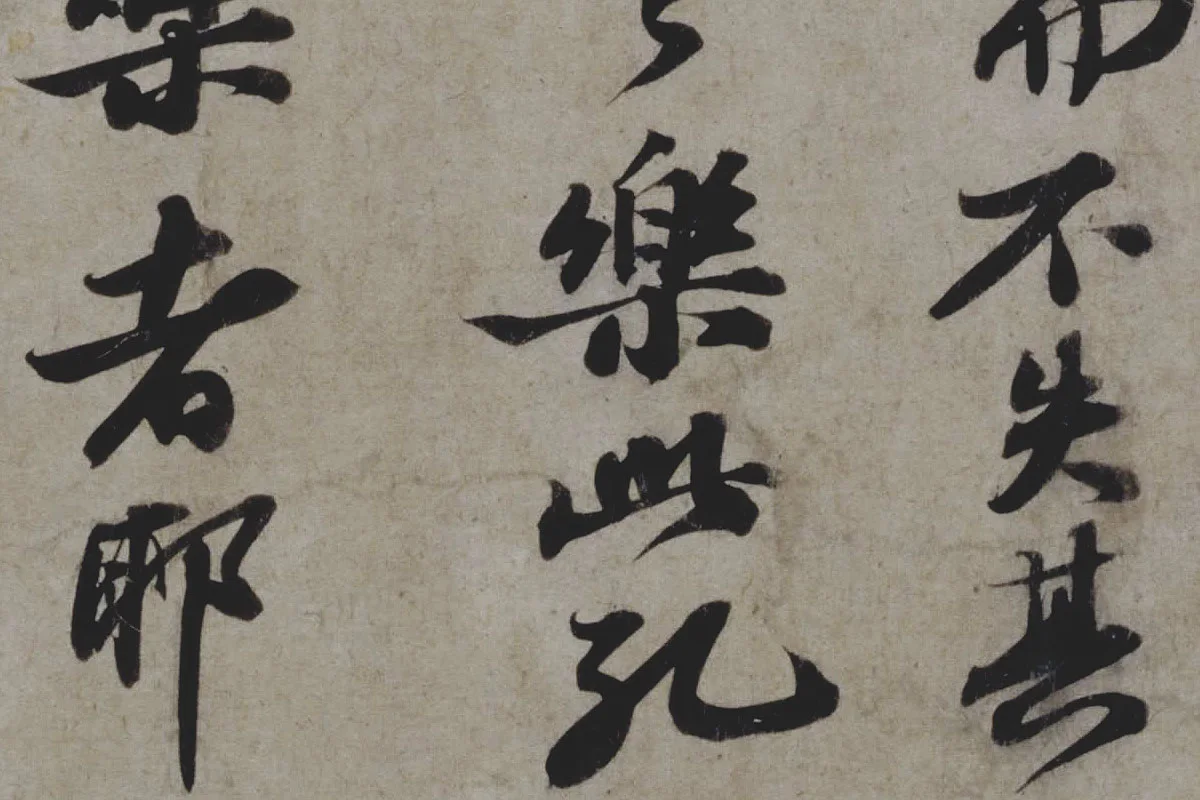 而不失其
樂此孔
者耶